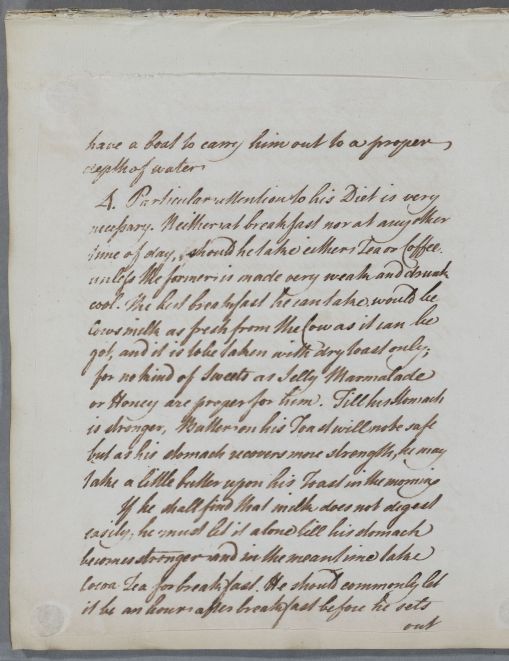 have a boat to carry him out to a proper
depth of water
4. Particular attention to his Diet is very
necessary. Neither at breakfast nor at any other
time of day, should he take either Tea or Coffee.
unless the former is made very weak and drunk
cool. The best breakfast he can take, would be
Cows milk as fresh from the Cow as it can be
got, and it is to be taken with dry toast only;
for no kind of Sweets as Jelly Marmalade
or Honey are proper for him. Till his stomach
is stronger, Butter on his Toast will not be safe
but as his stomach recovers more strength, he may
take a little butter upon his Toast in the morning
If he shall find that milk does not digest
easily, he must let it alone till his stomach
becomes stronger and in the meantime take
Cocoa Tea for breakfast. He should commonly let
it be an hour after breakfast before he sets
out